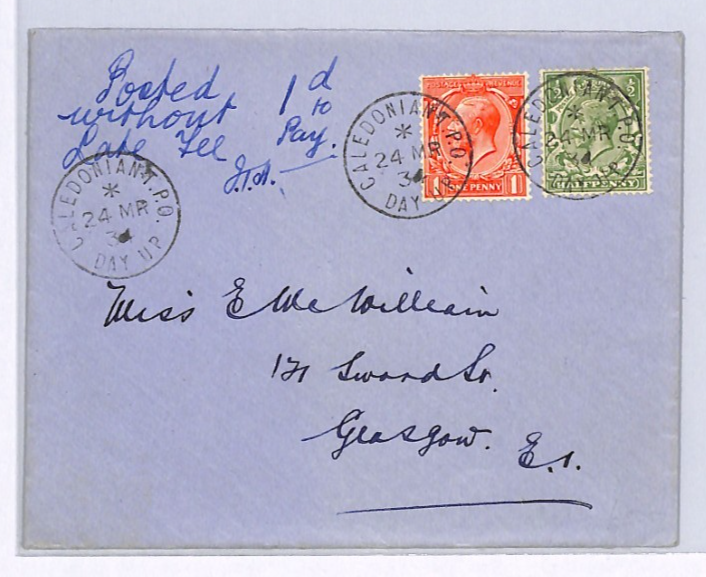 Posted 1d
without to
Late Fee Pay.
CALEDONIAN T.P.O.
24 MR
34
DAY UP
CALEDONIAN T.P.O.
24 MR
34
DAY UP
POSTAGE REVENUE
ONE PENNY 1
CALEDONIAN T.P.O.
24 MR
34
DAY UP
½
HALFPENNY
Miss E McWilliam
171 Sword St.
Glasgow. E.1.